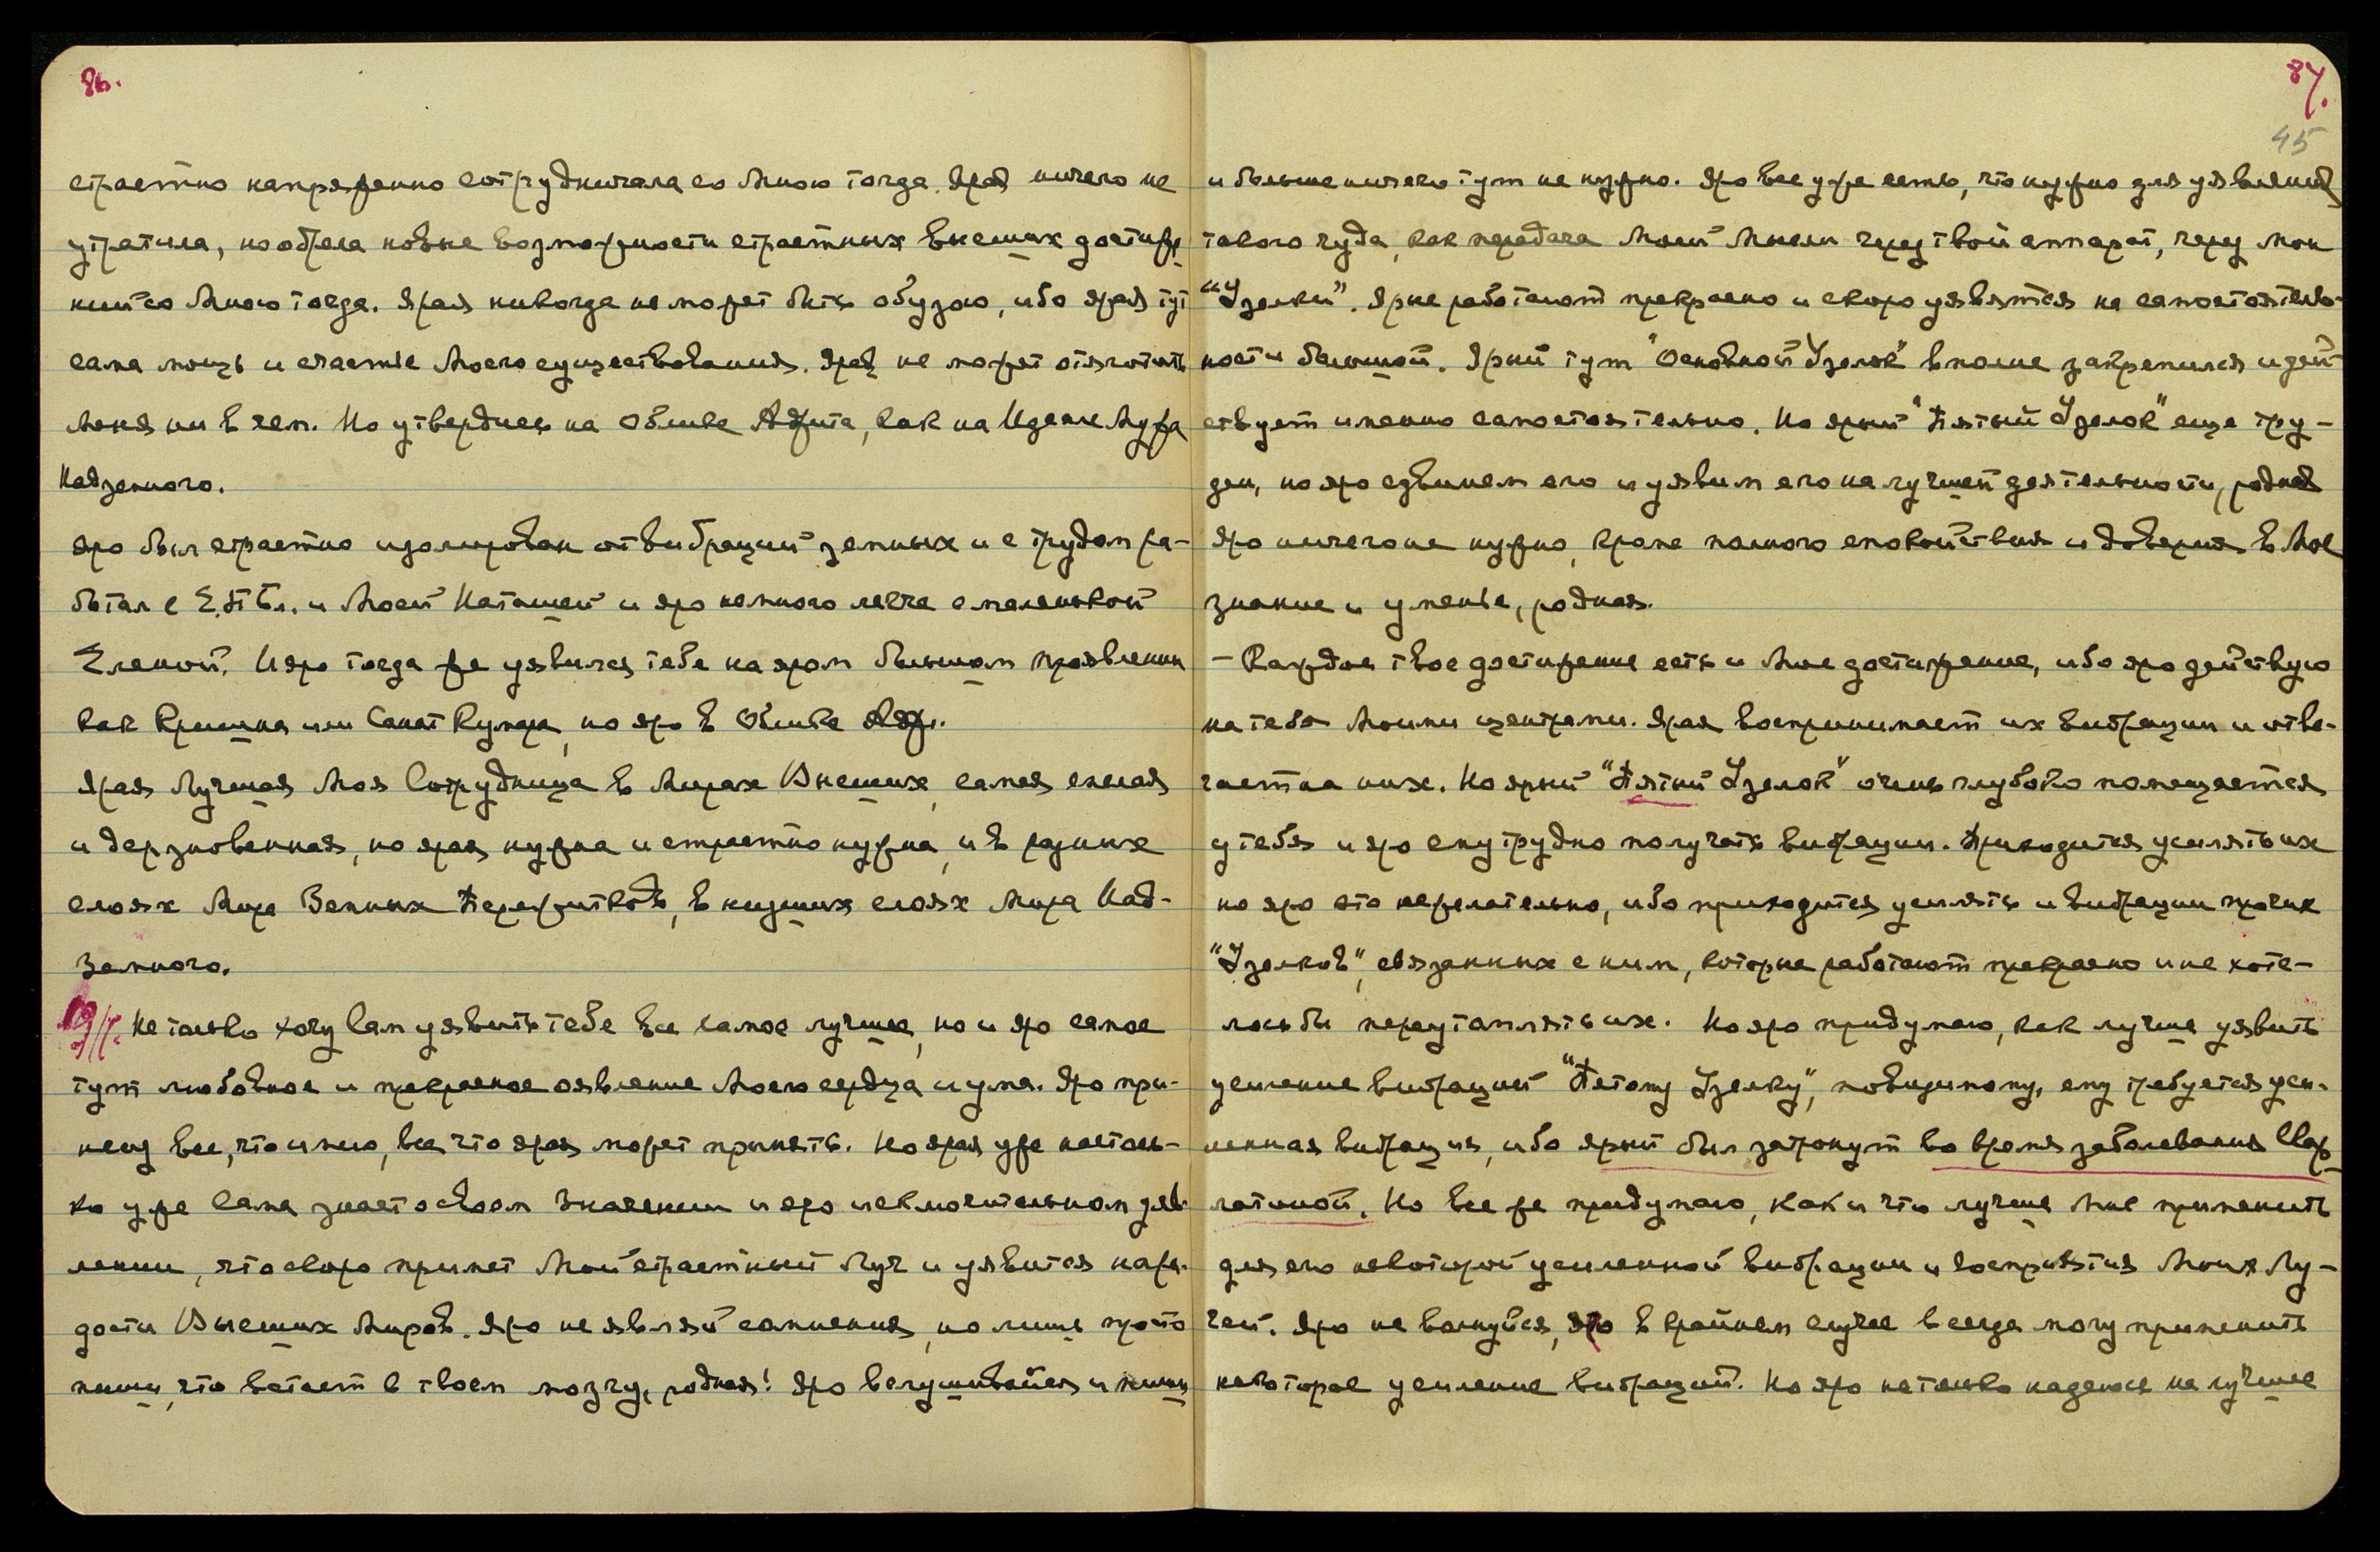 86.
страстно напряженно сотрудничала со Мною тогда. Ярая ничего не
утратила, но обрела новые возможности страстных внешних достиже-
ний со Мною тогда. Ярая никогда не может быть обузою, ибо ярая тут
сама мощь и счастье Моего существования. Ярая не может отяготить
Меня ни в чем. Но утвердись на Облике Аджита, как на Идеале Мужа
Надземного.
Яро был страстно изолирован от вибраций земных и с трудом ра-
ботал с Е.П.Бл. и Моей Наташей и яро немного легче с маленькой
Еленой. И яро тогда же уявился тебе на яром большом проявлении
как Кришна или Санат Кумара, но яро в Облике Адж.
Ярая Лучшая Моя Сотрудница в Мирах Высших, самая смелая
и дерзновенная, но ярая нужна и страстно нужна, и в разных
слоях Мира Земных Пережитков, в низших слоях Мира Над-
земного.
19/7. Не только хочу Сам уявить тебе все самое лучшее, но и яро самое
тут любовное и прекрасное оявление Моего сердца и ума. Яро при-
несу все, что имею, все что ярая может принять. Но ярая уже настоль-
ко уже сама знает о своем значении и яро исключительном уяв-
лении, что скоро примет Мой страстный Луч и уявится на ра-
дости Высших Миров. Яро не являй сомнения, но лишь просто
пиши, что встает в твоем мозгу, родная! Яро вслушивайся и пиши
87.
45
и больше ничего тут не нужно. Яро все уже есть, что нужно для уявления
такого чуда, как передача Моей Мысли через твой аппарат, через мои
"Узелки". Ярые работают прекрасно и скоро уявятся на самостоятель-
ности большой. Ярый тут "Основной Узелок" вполне закрепился и дей-
ствует именно самостоятельно. Но ярый "Пятый Узелок" еще тру-
ден, но яро сдвинем его и уявим его на лучшей деятельности, родная
Яро ничего не нужно, кроме полного спокойствия и доверия в Мое
знание и уменье, родная.
– Каждое твое достижение есть и Мое достижение, ибо яро действую
на тебя Моими центрами. Ярая воспринимает их вибрации и отве-
чает на них. Но ярый "Пятый Узелок" очень глубоко помещается
у тебя и яро ему трудно получать вибрации. Приходится усилять их
но яро это нежелательно, ибо приходится усилять и вибрации прочих
"Узелков", связанных с ним, которые работают прекрасно и не хоте-
лось бы переутомлять их. Но яро придумаю, как лучше уявить
усиление вибраций "Пятому Узелку", повидимому, ему требуется уси-
ленная вибрация, ибо ярый был затронут во время заболевания Скар-
латиной. Но все же придумаю, как и что лучше Мне применить
для его некоторой усиленной вибрации и восприятия Моих Лу-
чей. Яро не волнуйся, яро в крайнем случае всегда могу применить
некоторое усиление вибраций. Но яро не только надеюсь на лучшее